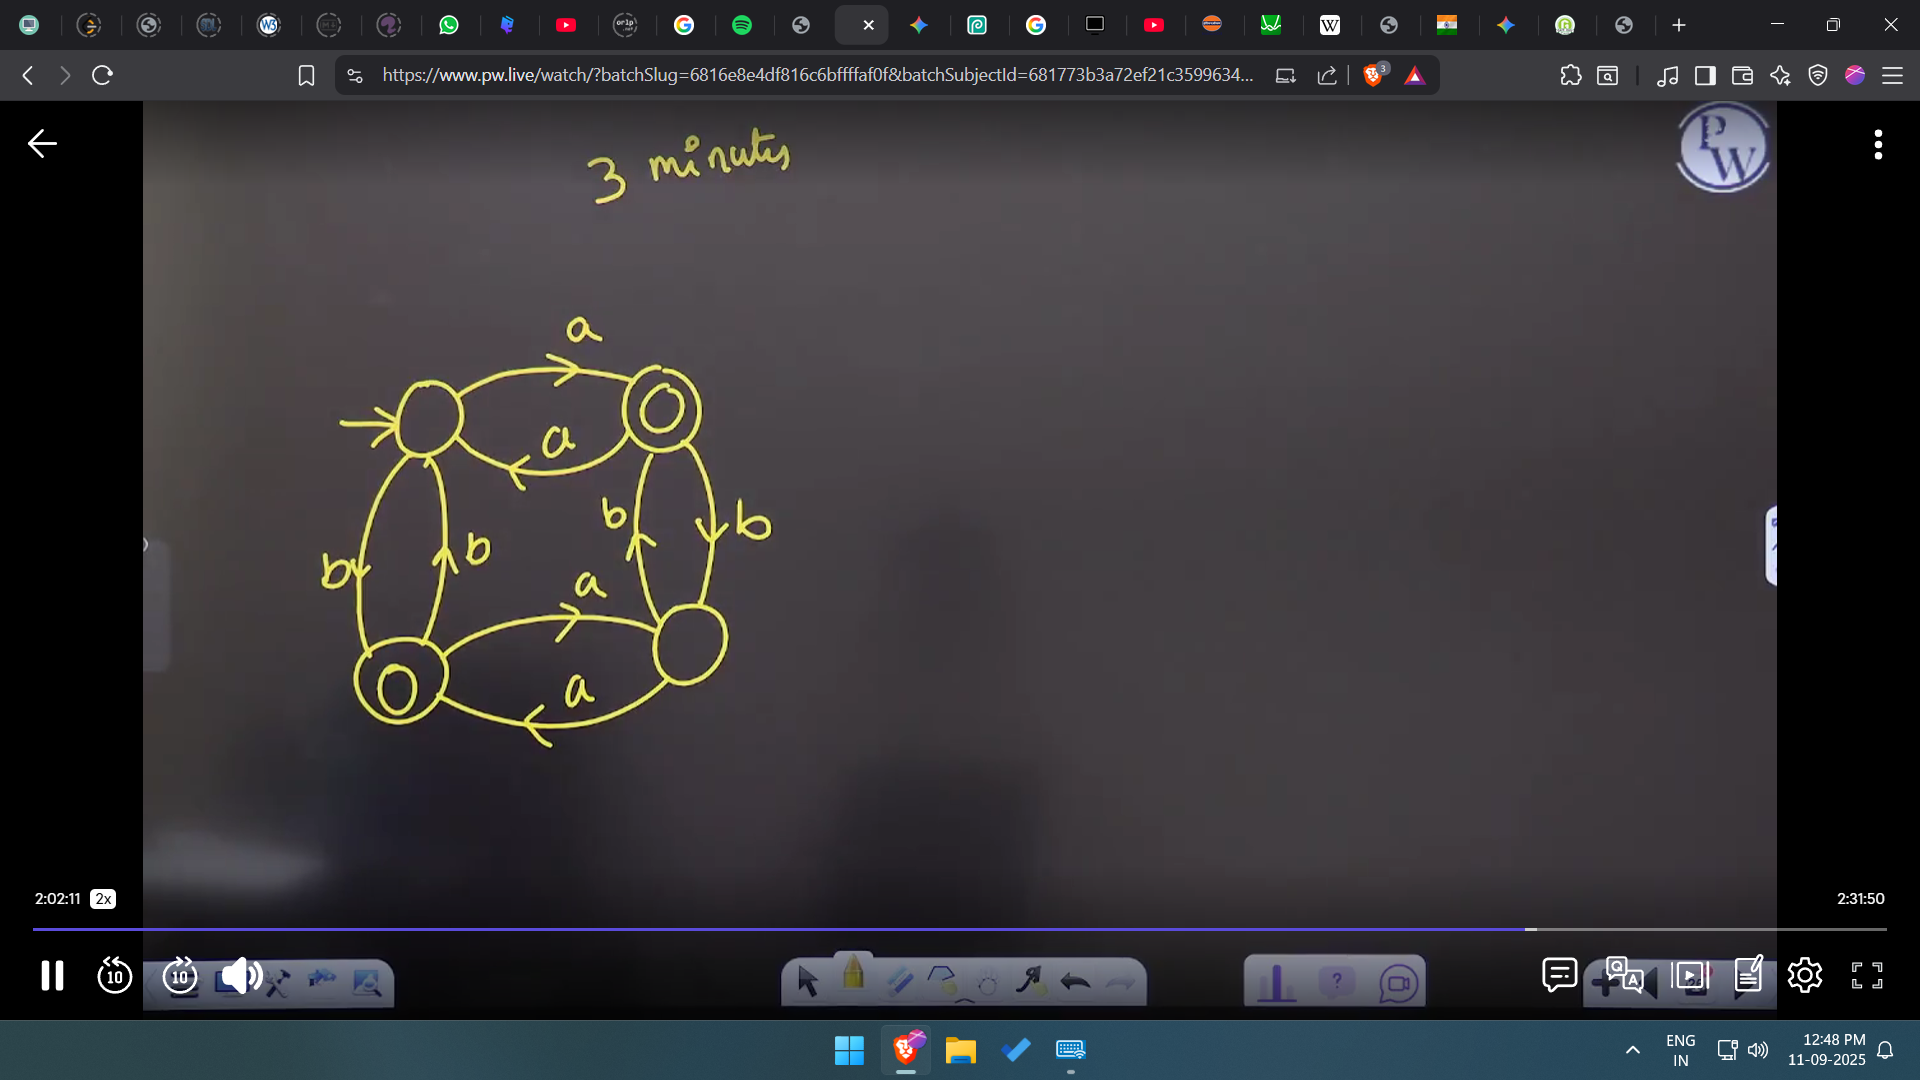 https://www.pw.live/watch/?batchSlug=6816e8e4df816c6bffffaf0f&batchSubjectId=681773b3a72ef21c3599634...
3
3 minutes
P
W
a
a
b
b
b
b
a
a
2:02:11 2x
2:31:50
10
10
Q
A
ENG
IN
12:48 PM
11-09-2025